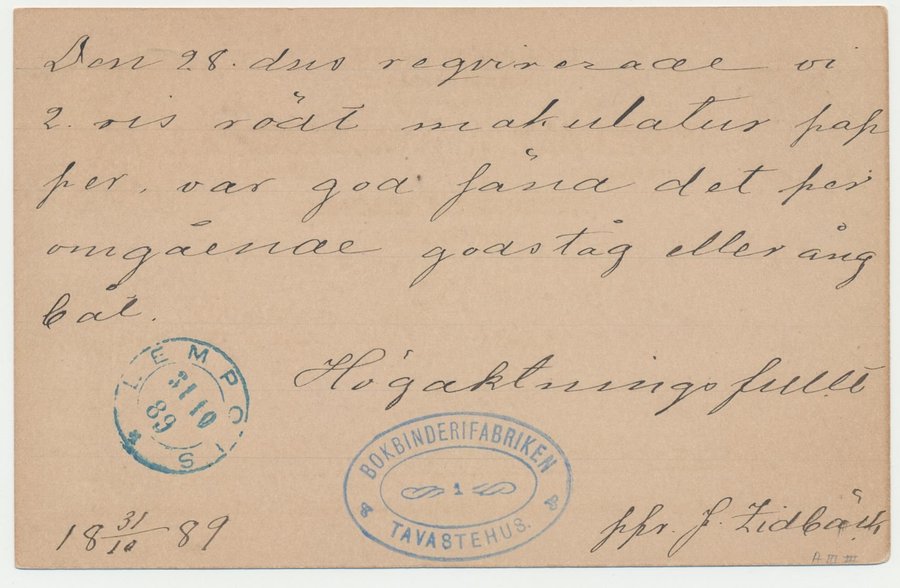 Den 28. dns reqvirerade vi
2. ris rödt makulatur pap
per, var god sänd det per
omgående godståg eller ång
båt.
Högaktningsfullt
LEMPOIS
31 10
89
BOKBINDERIFABRIKEN
1
TAVASTEHUS.
18 31/10 89
ppr. J. Lidbäck
A III III